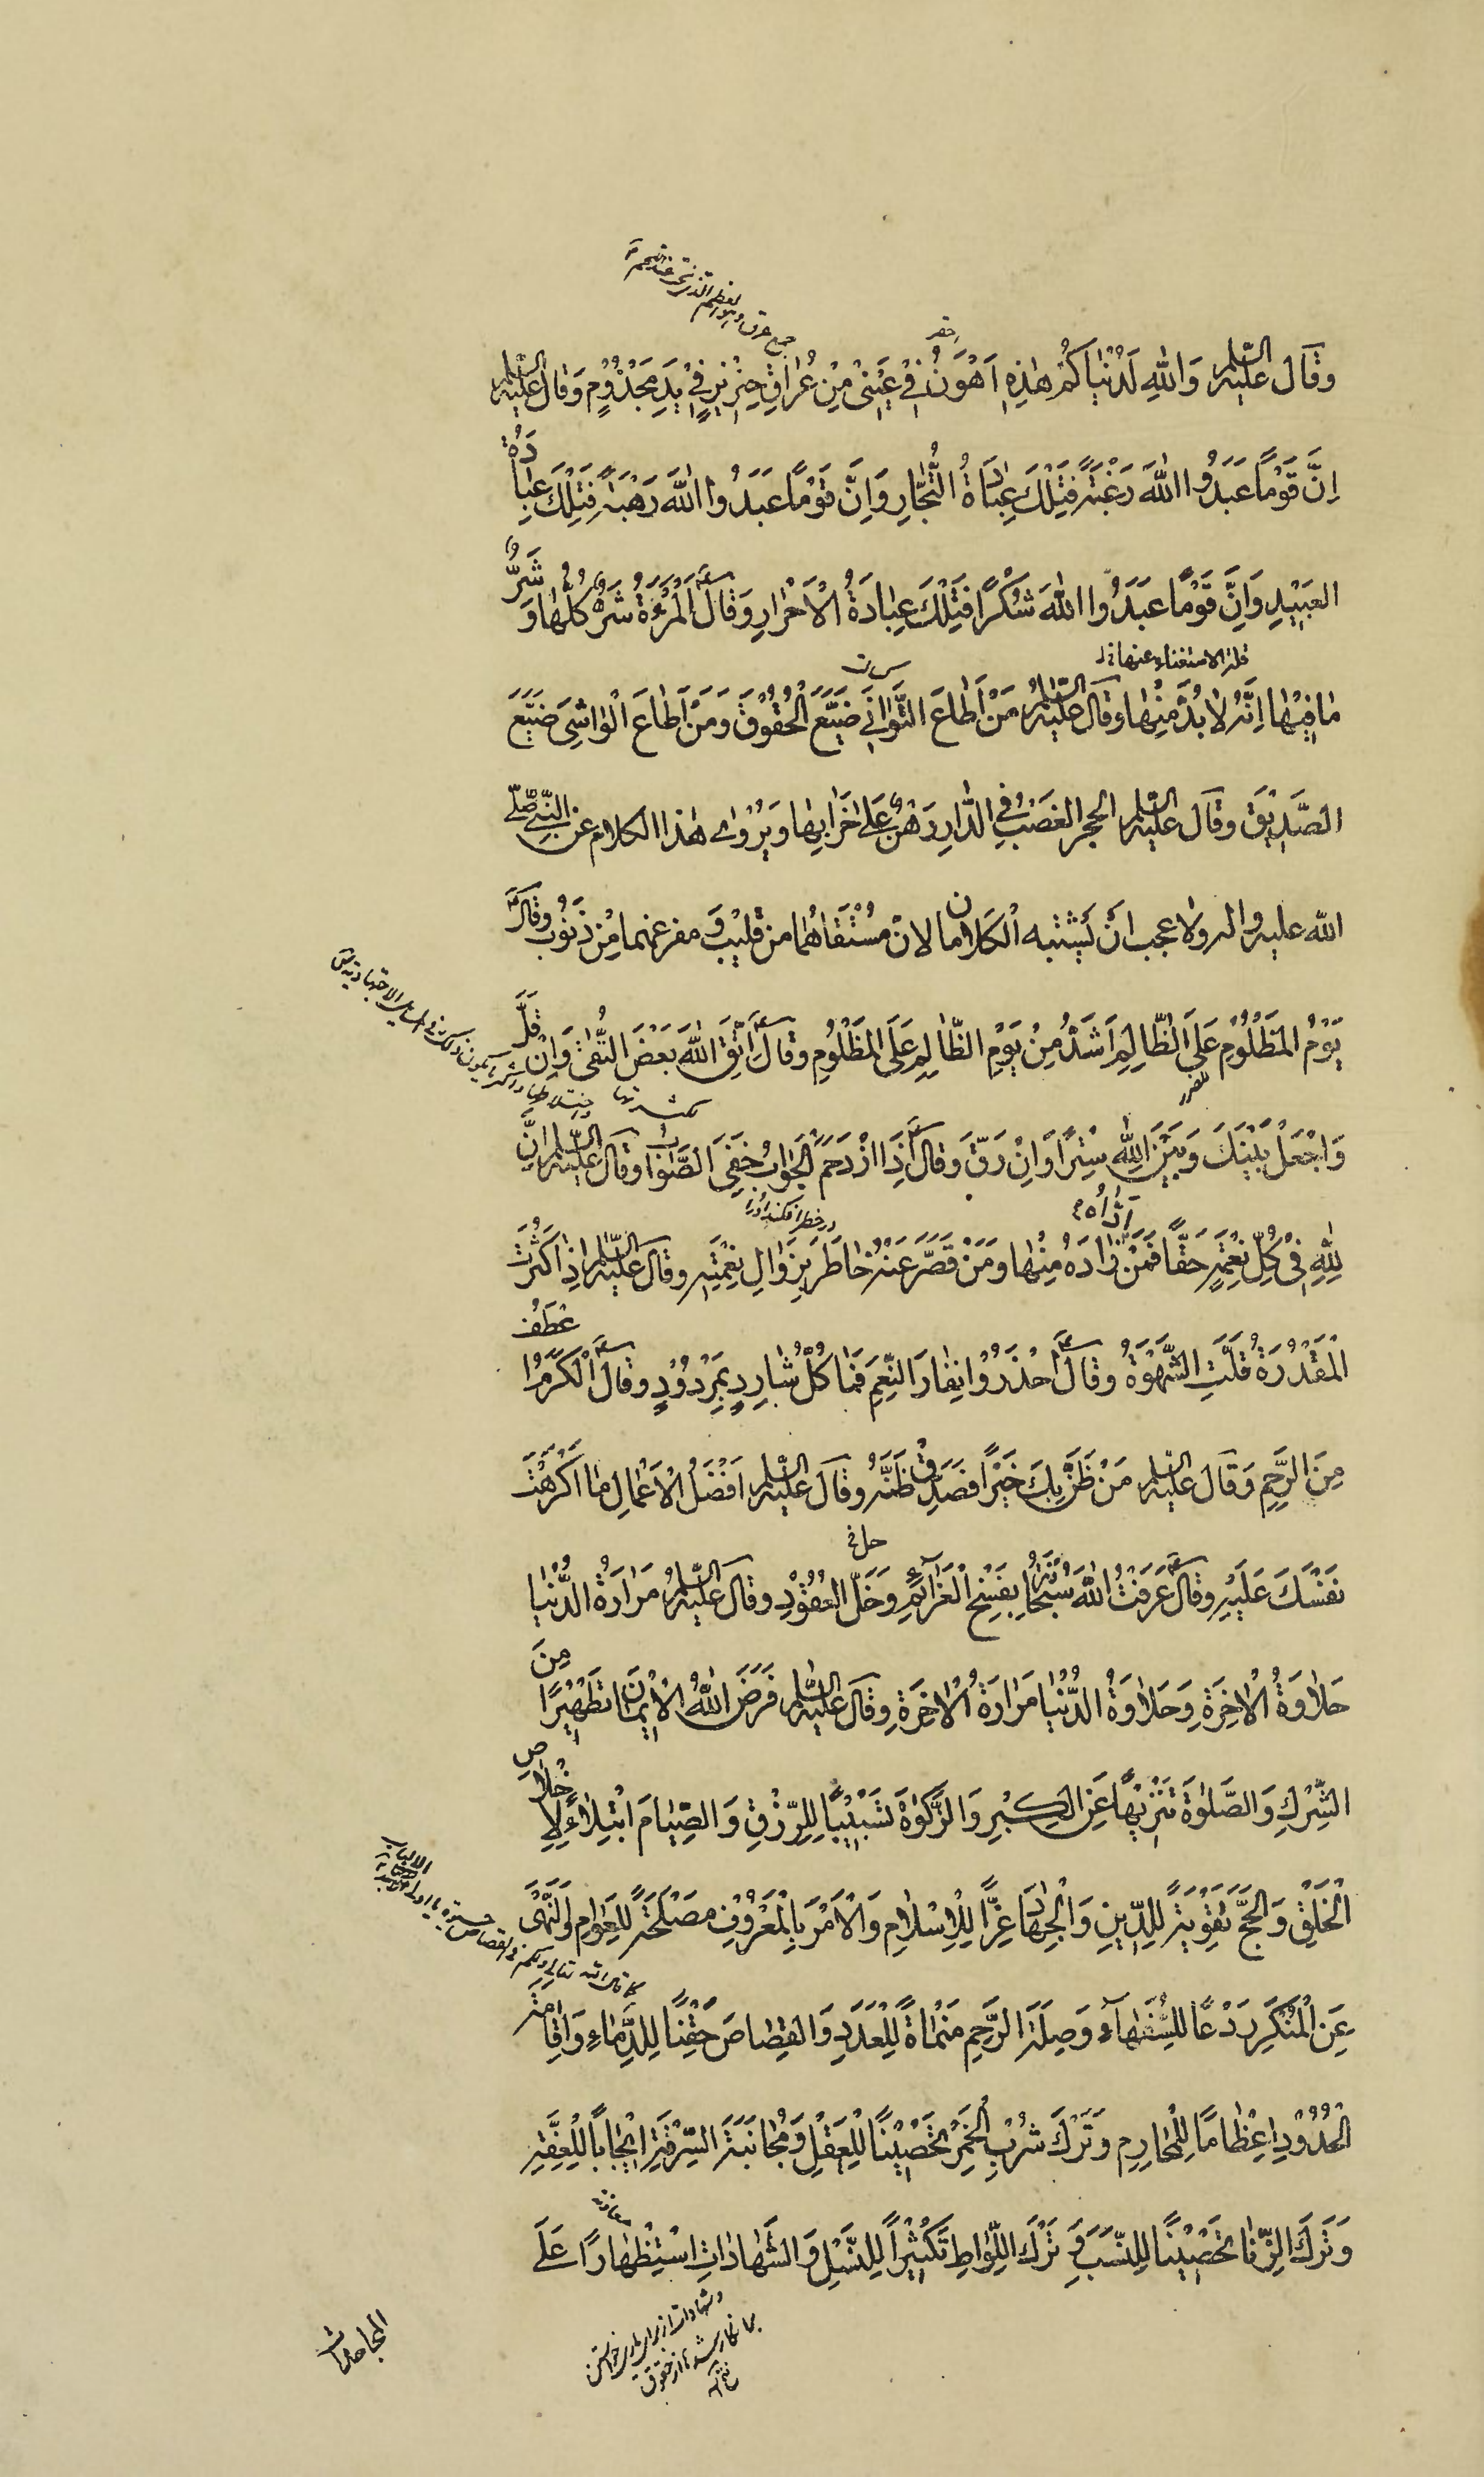 وَقَالَ عَلَيْهِ السَّلَم وَاللهِ لَدُنْيَاكُمْ هٰذِهِ اَهْوَنُ فِي عَيْنِيْ مِنْ عُرَاقِ خِنْزِيْرٍ فِيْ يَدِ مَجْذُوْمٍ وَقَالَ عَلَيْهِ السَّلَم
اِنَّ قَوْمًا عَبَدُوا اللهَ رَغْبَةً فَتِلْكَ عِبَادَةُ التُّجَّارِ وَاِنَّ قَوْمًا عَبَدُوا اللهَ رَهْبَةً فَتِلْكَ عِبَادَةُ
العَبِيْدِ وَاِنَّ قَوْمًا عَبَدُوا اللهَ شُكْرًا فَتِلْكَ عِبَادَةُ الْاَحْرَارِ وَقَالَ ؑ اَلْمَرْءَةُ شَرٌّ كُلُّهَا وَشَرُّ
قلة الاستغناء عنها
مَا فِيْهَا اِنَّهُ لَا بُدَّ مِنْهَا وَقَالَ عَلَيْهِ السَّلَمُ مَنْ اَطَاعَ التَّوَانِيَ ضَيَّعَ الْحُقُوْقَ وَمَنْ اَطَاعَ الْوَاشِيَ ضَيَّعَ
الصَّدِيْقَ وَقَالَ عَلَيْهِ السَّلَم الحجر الغَصْبُ فِي الدَّارِ رَهْنٌ عَلَى خَرَابِهَا وَيُرْوٰى هٰذَا الكلام عَنِ النَّبِيِّ صَلَّى
الله عليه واله ولا عجب اَنْ يَشْتَبِه اَلْكَلَامان لانّ مُسْتَقَاهُمَا من قَلِيْبٍ وَ مفرغهما مِنْ ذَنُوْبٍ وَقَالَ ؑ
يَوْمُ الْمَظْلُوْمِ عَلَى الظَّالِمِ اَشَدُّ مِنْ يَوْمِ الظَّالِمِ عَلَى الْمَظْلُوْمِ وَقَالَ ؑ اِتَّقِ اللهَ بَعْضَ التُّقَىٰ وَاِنْ قَلَّ
وَاجْعَلْ بَيْنَكَ وَبَيْنَ اللهِ سِتْرًا وَاِنْ رَقَّ وَقَالَ ؑ اِذَا ازْدَحَمَ الْجَوَابُ خَفِيَ الصَّوَابُ وَقَالَ عَلَيْهِ السَّلَم اِنَّ
لِلّٰهِ فِيْ كُلِّ نِعْمَةٍ حَقًّا فَمَنْ اَدَّاهُ زَادَهُ مِنْهَا وَمَنْ قَصَّرَ عَنْهُ خَاطَرَ بِزَوَالِ نِعْمَتِهِ وَقَالَ عَلَيْهِ السَّلَم اِذَا كَثُرَتْ
الْمَقْدُرَةُ قَلَّتِ الشَّهْوَةُ وَقَالَ ؑ اِحْذَرُوْا نِفَارَ النِّعَمِ فَمَا كُلُّ شَارِدٍ بِمَرْدُوْدٍ وَقَالَ ؑ اَلْكَرَمُ اَعْطَفُ
مِنَ الرَّحِمِ وَقَالَ عَلَيْهِ السَّلَم مَنْ ظَنَّ بِكَ خَيْرًا فَصَدِّقْ ظَنَّهُ وَقَالَ عَلَيْهِ السَّلَم اَفْضَلُ الْاَعْمَالِ مَا اَكْرَهْتَ
نَفْسَكَ عَلَيْهِ وَقَالَ ؑ عَرَفْتُ اللهَ سُبْحَانَهُ بِفَسْخِ الْعَزَآئِمِ وَحَلِّ العُقُوْدِ وَقَالَ عَلَيْهِ السَّلَمُ مَرَارَةُ الدُّنْيَا
حَلَاوَةُ الْاٰخِرَةِ وَحَلَاوَةُ الدُّنْيَا مَرَارَةُ الْاٰخِرَةِ وَقَالَ عَلَيْهِ السَّلَم فَرَضَ اللهُ الْاِيْمَانَ تَطْهِيْرًا مِنَ
الشِّرْكِ وَالصَّلٰوةَ تَنْزِيْهًا عَنِ الْكِبْرِ وَالزَّكٰوةَ تَسْبِيْبًا لِلرِّزْقِ وَالصِّيَامَ ابْتِلَاءً لِاِخْلَاصِ
الْخَلْقِ وَالْحَجَّ تَقْوِيَةً لِلدِّيْنِ وَالْجِهَادَ عِزًّا لِلْاِسْلَامِ وَالْاَمْرَ بِالْمَعْرُوْفِ مَصْلَحَةً لِلْعَوَامِ وَالنَّهْىَ
عَنِ الْمُنْكَرِ رَدْعًا لِلسُّفَهَآءِ وَصِلَةَ الرَّحِمِ مَنْمَاةً لِلْعَدَدِ وَالقِصَاصَ حَقْنًا لِلدِّمَاءِ وَاِقَامَةَ
الْحُدُوْدِ اِعْظَامًا لِلْمَحَارِمِ وَتَرْكَ شُرْبِ الْخَمْرِ تَحْصِيْنًا لِلْعَقْلِ وَمُجَانَبَةَ السِّرْقَةِ اِيْجَابًا لِلْعِفَّةِ
وَتَرْكَ الزِّنَا تَحْصِيْنًا لِلنَّسَبِ وَ تَرْكَ اللِّوَاطِ تَكْثِيْرًا لِلنَّسْلِ وَالشَّهَادَاتِ اسْتِظْهَارًا عَلَى
المجاحدات